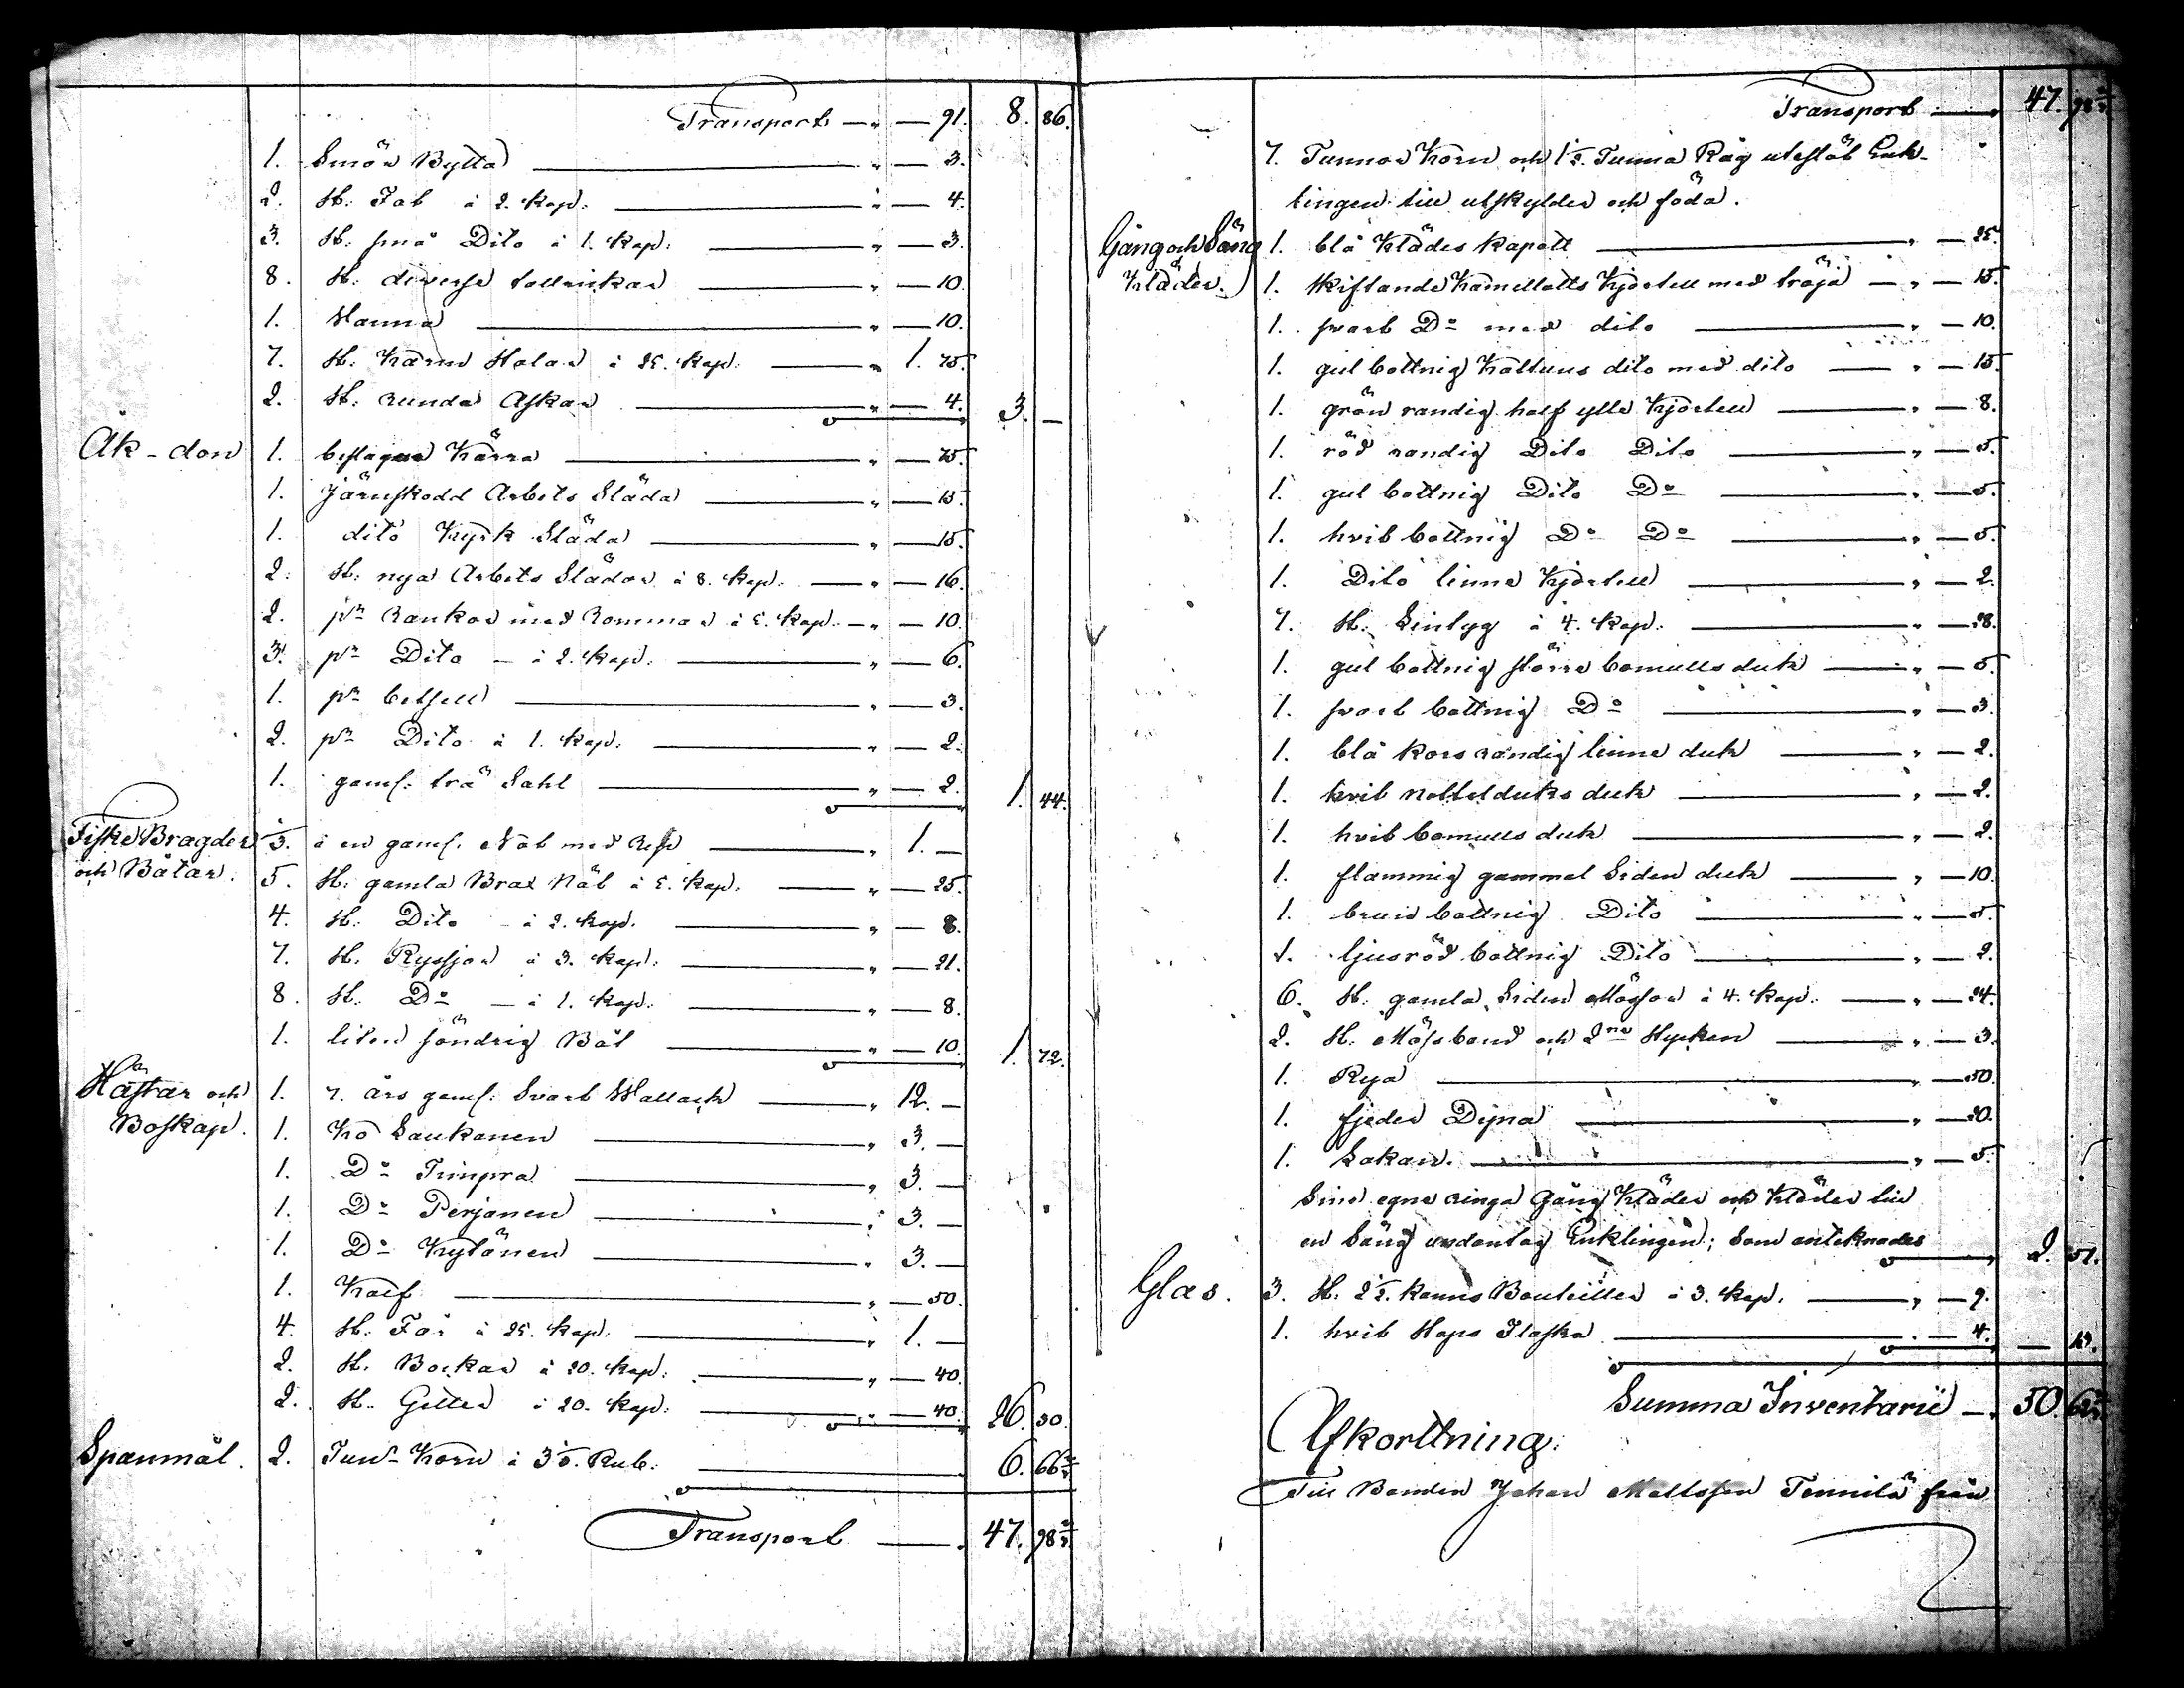 Transport — „ — 91. 8. 86.
1. Smör Bytta „ — 3.
2. St: Fat à 2. Kop: „ — 4.
3. St: små Dito à 1. Kop: „ — 3.
8. St: diverse tallrickar „ — 10.
1. Kanna „ — 10.
7. St: à 25. Kop: „ 1. 75.
2. St: runda Askar „ — 4. 3. —
Åk-don 1. beslagen Kärra „ — 75.
1. Järnskodd Arbets Släda „ — 15.
1. dito Kyrk Släda „ — 15.
2. St: nya Arbets Slädor à 8. Kop: „ — 16.
2. pr Rankor med Rommor à 5. Kop: „ — 10.
3. pr Dito — à 2. Kop: „ — 6.
1. pr betsell „ — 3.
2. pr Dito à 1. Kop: „ — 2.
1. gaml: trä Sahl „ — 2. 1. 44.
Fiske Bragder 1/3. à en gaml. Not med Ref „ 1. —
och Båtar. 5. St: gamla Brax Nät à 5. Kop. „ — 25.
4. St: Dito — à 2. Kop. „ — 8.
7. St: Ryssjor à 3. Kop: „ — 21.
8. St: Do — à 1. Kop: „ — 8.
1. liten söndrig Båt „ — 10. 1. 72.
Hästar och 1. 7. års gaml: Svart Wallack „ 12. —
Boskap. 1. Ko Laukanen „ 3. —
1. Do „ 3. —
1. Do Perjanen „ 3. —
1. Do Kytönen „ 3. —
1. Kalf „ — 50.
4. St: Får à 25. Kop: „ 1. —
2. St: Bockar à 20. Kop: „ — 40.
2. St: Getter à 20. Kop: „ — 40. 26. 30.
Spanmål. 2. Tunr Korn à 3 1/3. Rub: 6. 66 2/3
Transport 47. 98 2/3
Transport 47. 98 2/3
7. Tunnor Korn och 1 1/2. Tunna Råg uteslöt Enk-
lingen till utskylder och föda.
Gång och Säng 1. blå Klädes Kapott „ — 25.
Kläder. 1. skiftande Kamelotts Kjortell med tröja „ — 15.
1. svart Do med dito „ — 10.
1. gul bottnig Kattuns dito med dito „ — 15.
1. grön randig half ylle Kjortell „ — 8.
1. röd randig Dito Dito „ — 5.
1. gul bottnig Dito Do „ — 5.
1. hvit bottnig Do Do „ — 5.
1. Dito linne Kjortell „ — 2.
7. St: Lintyg à 4. Kop: „ — 28.
1. gul bottnig större bomulls duk „ — 5.
1. svart bottnig Do „ — 3.
1. blå kors randig linne duk „ — 2.
1. hvit nettelduks duk „ — 2.
1. hvit bomulls duk „ — 2.
1. flammig gammal Siden duk „ — 10.
1. brun bottnig Dito „ — 5.
1. ljusröd bottnig Dito „ — 2.
6. St: gamla Siden Mössor à 4. Kop: „ — 24.
2. St: Mössband och 2ne Stycken „ — 3.
1. Rya „ — 50.
1. fjeder Dyna „ — 20.
1. Lakan. „ — 5.
Sine egne ringa Gång Kläder och Kläder till
en Säng undantog Enklingen; Som anteknades 2. 51.
Glas. 3. St: 2 1/2. kanns Bouteiller à 3. Kop. „ — 9.
1. hvit Flaska „ — 4. — 13.
Summa Inventarii 50. 62 2/3
Afkorttning:
Till Bonden Johan Mattsson från